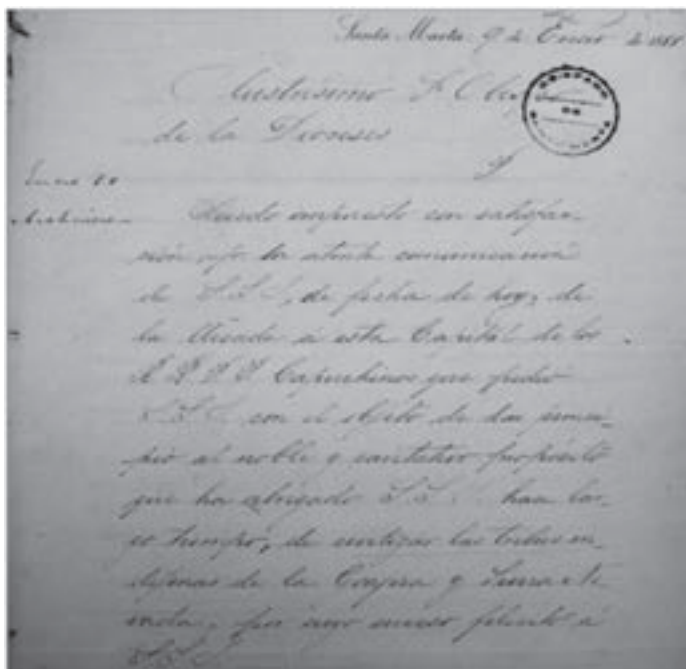 Santa Marta 9 de Enero de 188
Ilustrisimo S. Obispo
de la Diocesis
OBISPADO
DE
P
Enero 10
Quedo impuesto con satisfac-
ción por la atenta comunicacion
de S.S.I., de fecha de hoy, de
la llegada a esta Capital de los
R R P P Capuchinos que pidió
S.S.I. con el objeto de dar princi-
pio al noble y caritativo proposito
que ha abrigado S.S.I. hace lar-
go tiempo, de las tribus in-
dijenas de la Goajira y Sierra Ne-
vada, por cuyo suceso felicito á
S.S.I.